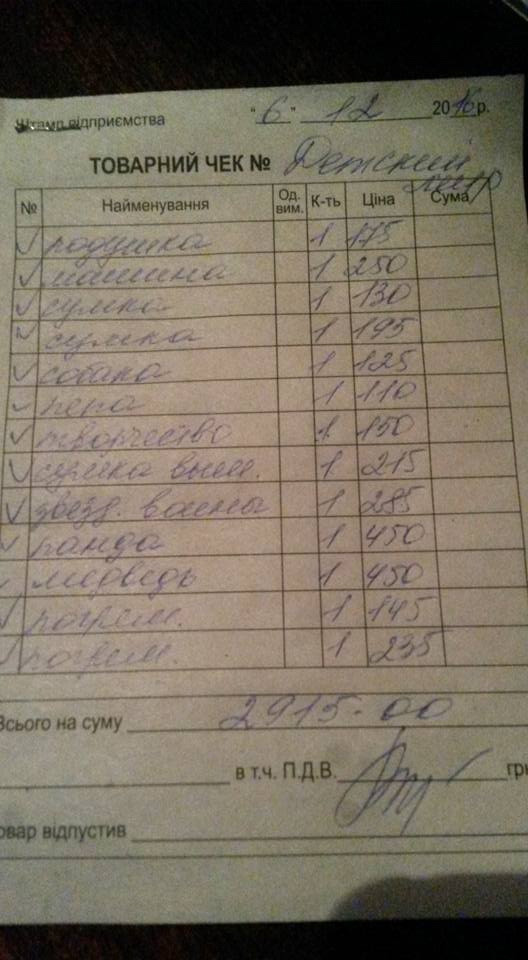 Штамп підприємства "6" 12 2016 р.
ТОВАРНИЙ ЧЕК № Детский мир
№ Найменування Од. вим. К-ть Ціна Сума
✓ подушка 1 175
✓ машина 1 250
✓ сумка 1 130
✓ сумка 1 195
✓ собака 1 125
✓ пепа 1 110
✓ творчество 1 150
✓ сумка выш. 1 215
✓ звезд. воины 1 285
✓ панда 1 450
✓ медведь 1 450
✓ погрем. 1 145
✓ погрем. 1 235
Всього на суму 2915-00
в т.ч. П.Д.В. грн
овар відпустив